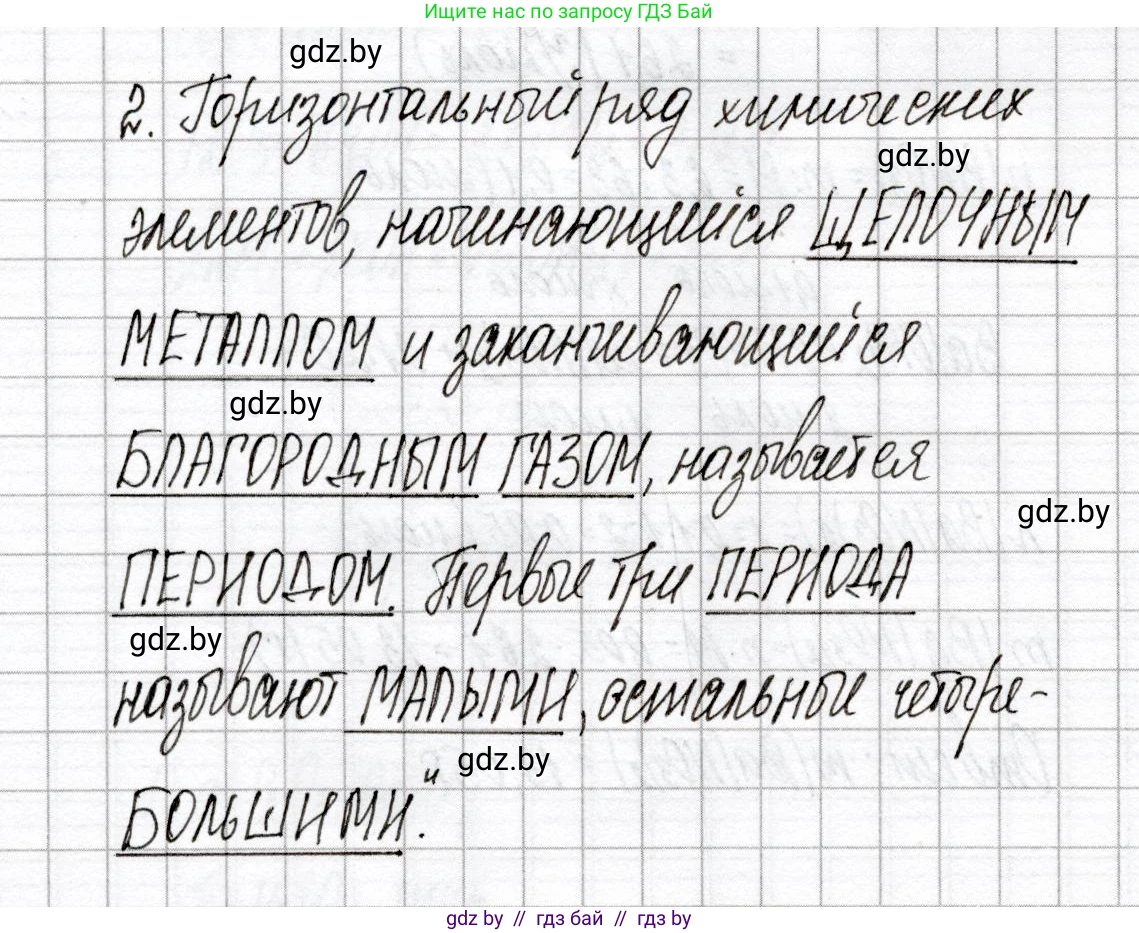 Ищите нас по запросу ГДЗ Бай
gdz.by
2. Горизонтальный ряд химических
gdz.by
элементов, начинающийся ЩЕЛОЧНЫМ
МЕТАЛЛОМ и заканчивающийся
gdz.by
БЛАГОРОДНЫМ ГАЗОМ, называется
gdz.by
ПЕРИОДОМ. Первые три ПЕРИОДА
gdz.by
называют МАЛЫМИ, остальные четыре-
gdz.by
БОЛЬШИМИ."
gdz by // гдз бай // гдз by